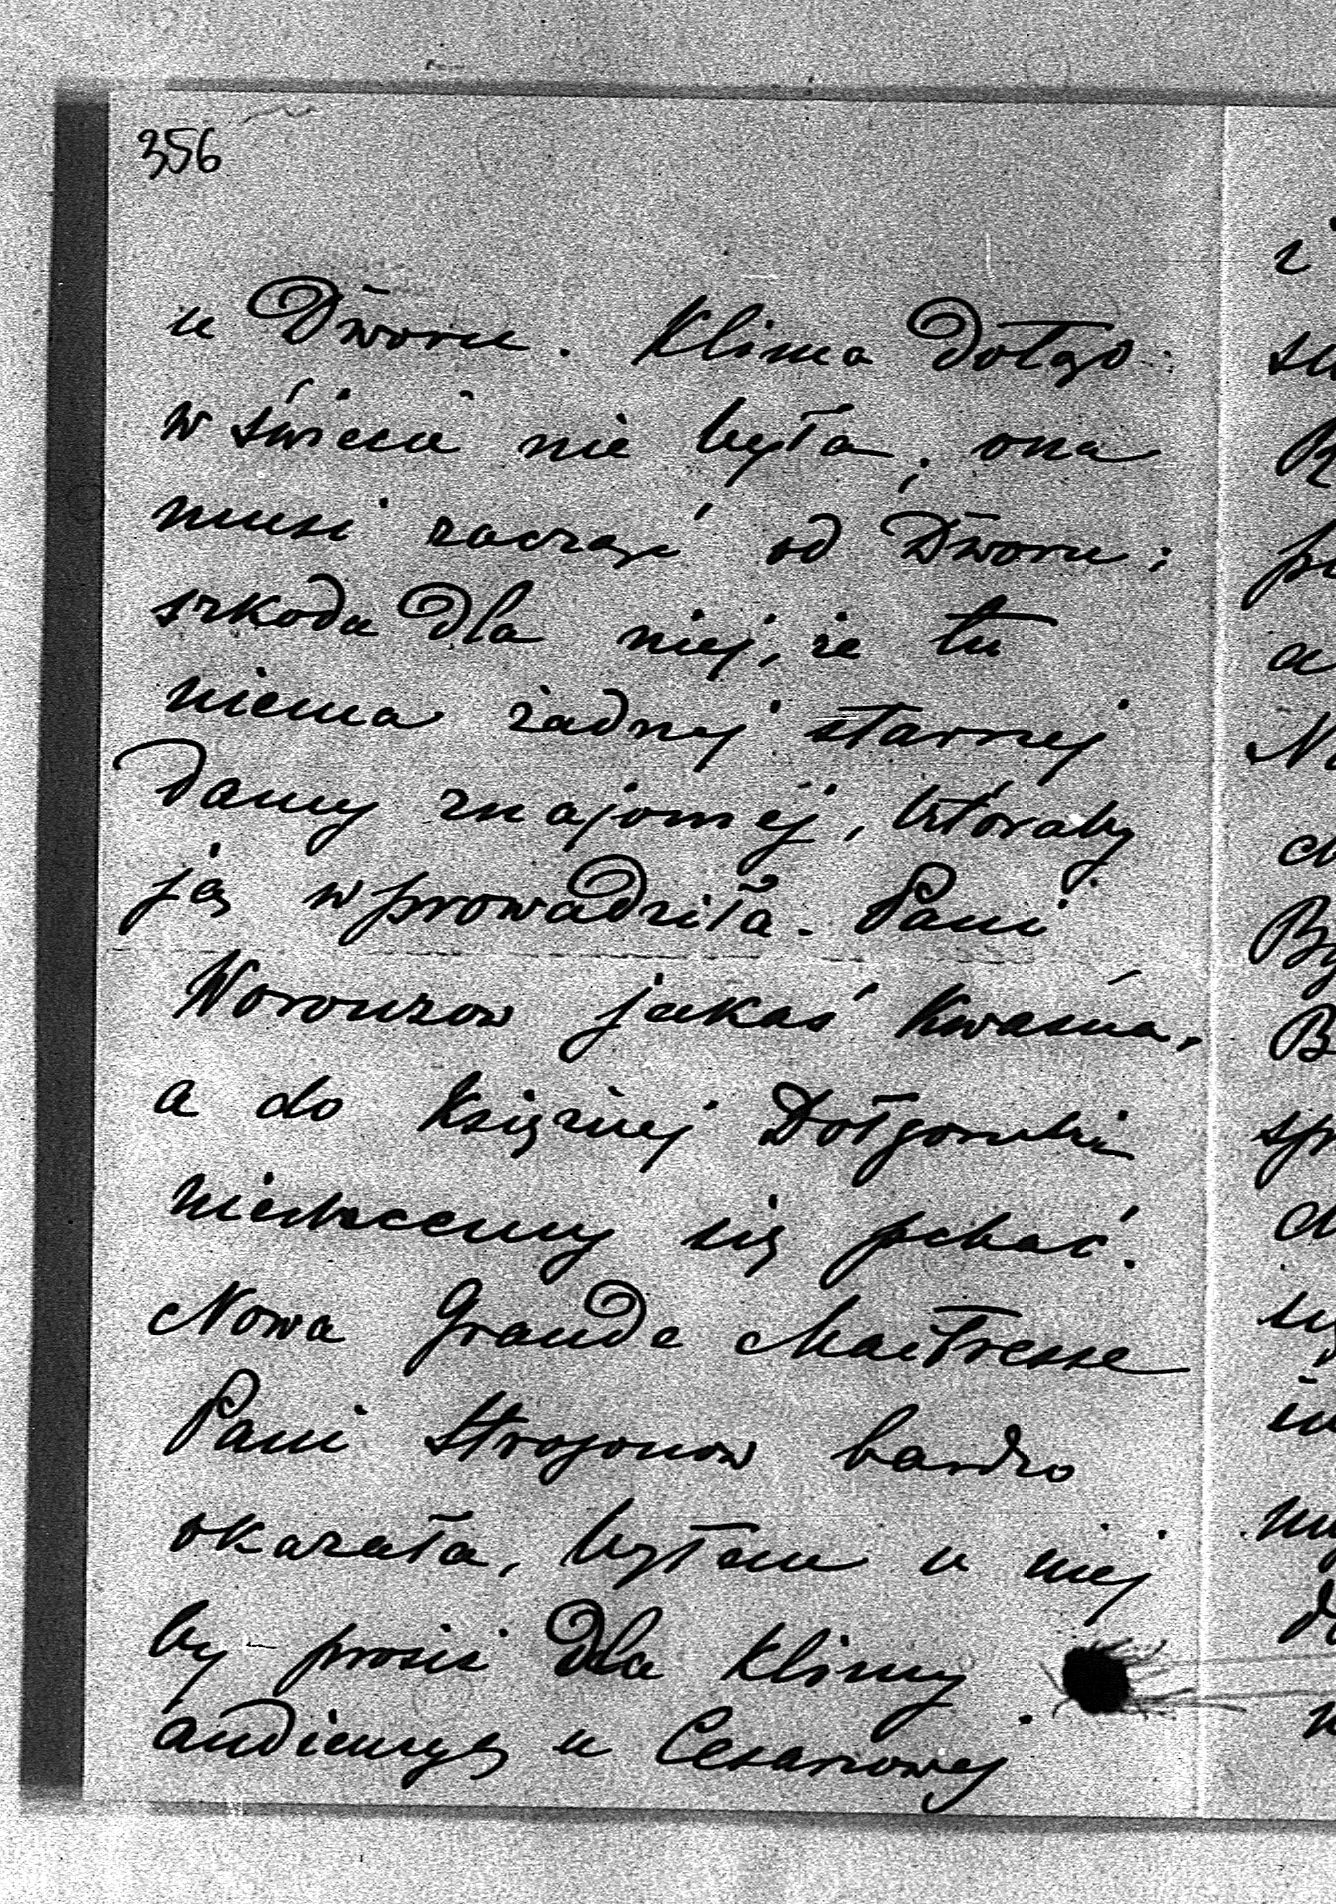 356
u Dworu. Klima dołgo
w świecie nie była, ona
musi zacząć od Dworu;
szkoda dla niej, że tu
niema żadnej starszej
damy znajomej, któraby
ją wprowadziła. Pani
Woronzow jakaś kwaśna,
a do Księżnej Dołgoruki
niechcemy się pchać.
Nowa Grande Maitresse
Pani Strogonow bardzo
okazała, byłem u niej
by prosić dla Klimy
audiencyę u Cesarzowej